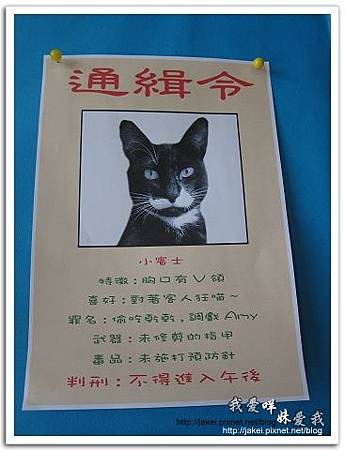 通緝令
小賓士
特徵：胸口有V領
喜好：對著客人狂喵~
罪名：偷吃乾乾,調戲Amy
武器：未修剪的指甲
毒品：未施打預防針
判刑：不得進入午後
我愛咩 妹愛我
http://jakei.pixnet.net/blog
http://jakei.pixnet.net/blog